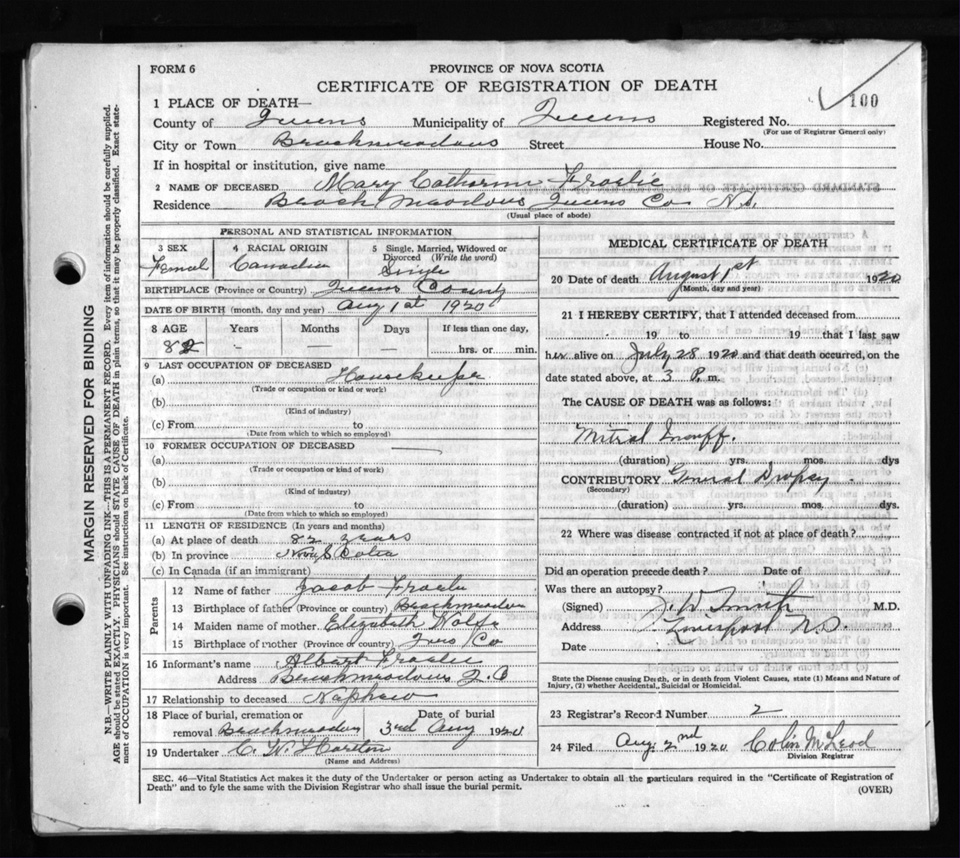 FORM 6
PROVINCE OF NOVA SCOTIA
CERTIFICATE OF REGISTRATION OF DEATH
100
1 PLACE OF DEATH—
County of Queens Municipality of Queens Registered No.
(For use of Registrar General only)
City or Town Beachmeadows Street House No.
If in hospital or institution, give name
2 NAME OF DECEASED Mary Catharine
Residence Beach Meadows Queens Co N.S.
(Usual place of abode)
PERSONAL AND STATISTICAL INFORMATION
3 SEX 4 RACIAL ORIGIN 5 Single, Married, Widowed or Divorced (Write the word)
Femal Canadian Single
BIRTHPLACE (Province or Country) Queens County
DATE OF BIRTH (month, day and year) Aug 1st 1920
8 AGE Years Months Days If less than one day,
82 - — — hrs. or min.
9 LAST OCCUPATION OF DECEASED
(a) Housekeeper
(Trade or occupation or kind of work)
(b)
(Kind of industry)
(c) From to
(Date from which to which so employed)
10 FORMER OCCUPATION OF DECEASED
(a)
(Trade or occupation or kind of work)
(b)
(Kind of industry)
(c) From to
(Date from which to which so employed)
11 LENGTH OF RESIDENCE (In years and months)
(a) At place of death 82 years
(b) In province Nova Scotia
(c) In Canada (if an immigrant)
Parents
12 Name of father Jacob
13 Birthplace of father (Province or country) Beachmeadows
14 Maiden name of mother Elizabeth Wolfe
15 Birthplace of mother (Province or country) Co
16 Informant's name Albert
Address Beachmeadows Q.C
17 Relationship to deceased Naphew
18 Place of burial, cremation or removal Beachmeadows Date of burial 3rd Aug 1920
19 Undertaker C. W.
(Name and Address)
MEDICAL CERTIFICATE OF DEATH
20 Date of death August 1st 1920
(Month, day and year)
21 I HEREBY CERTIFY, that I attended deceased from
19 to 19 that I last saw
her alive on July 28 1920 and that death occurred, on the
date stated above, at 3 P. m.
The CAUSE OF DEATH was as follows:
Mitral Insuff.
(duration) yrs. mos. dys
CONTRIBUTORY General Dropsy
(Secondary)
(duration) yrs. mos. dys.
22 Where was disease contracted if not at place of death?
Did an operation precede death? Date of
Was there an autopsy?
(Signed) J. W. Smith M.D.
Address Liverpool N.S.
Date
State the Disease causing Death, or in death from Violent Causes, state (1) Means and Nature of Injury, (2) whether Accidental, Suicidal or Homicidal.
23 Registrar's Record Number 2
24 Filed Aug. 2nd 1920 Colin McLeod
Division Registrar
SEC. 46—Vital Statistics Act makes it the duty of the Undertaker or person acting as Undertaker to obtain all the particulars required in the "Certificate of Registration of
Death" and to fyle the same with the Division Registrar who shall issue the burial permit.
(OVER)
MARGIN RESERVED FOR BINDING
N.B.—WRITE PLAINLY WITH UNFADING INK—THIS IS A PERMANENT RECORD. Every item of information should be carefully supplied.
AGE should be stated EXACTLY. PHYSICIANS should STATE CAUSE OF DEATH in plain terms, so that it may be properly classified. Exact state-
ment of OCCUPATION is very important. See instructions on back of Certificate.